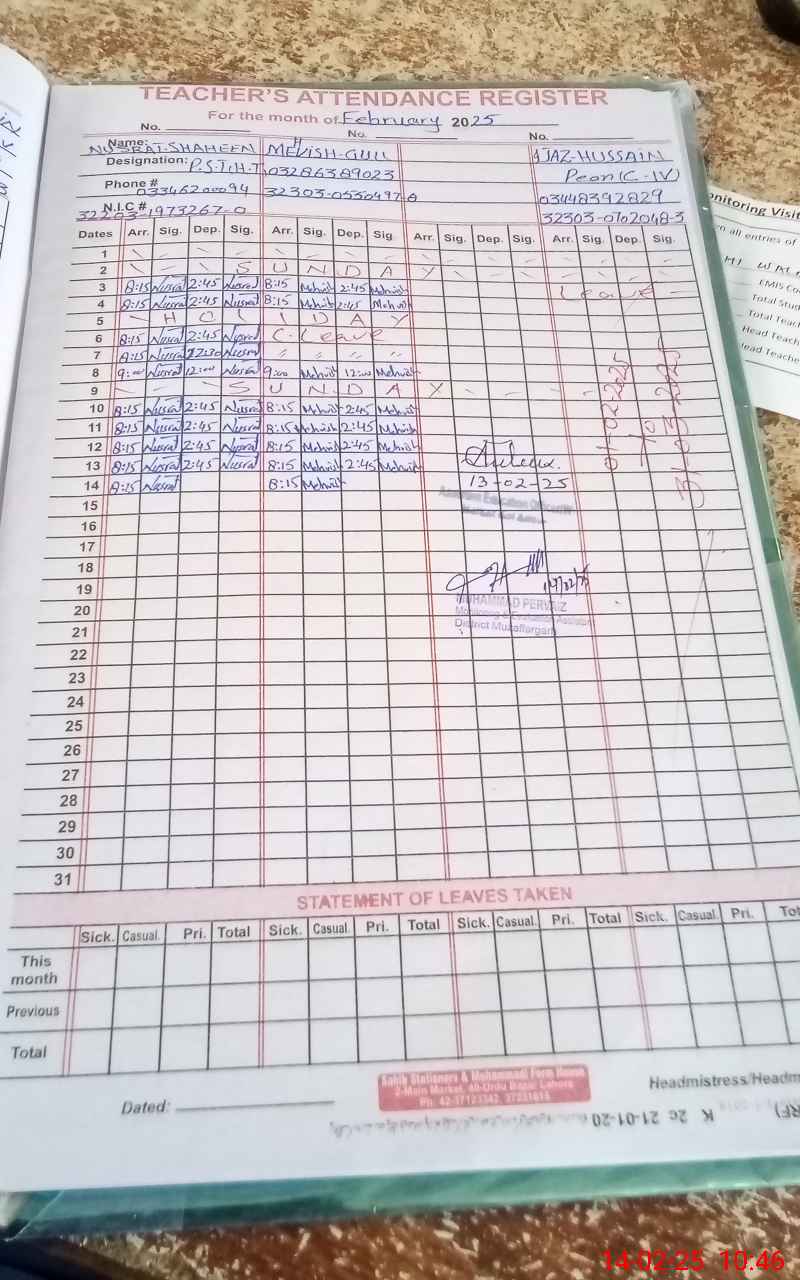 TEACHER'S ATTENDANCE REGISTER
For the month of February 2025
No. No. No.
Name: NUSRAT-SHAHEEN MEVISH-GULL AJAZ-HUSSAIN
Designation: P.S.T.H.T 03286389023 Peon (C-IV)
Phone # 03346200094 32303-0530497-8 03448392829
N.I.C # 32203-1973267-0 32303-0702048-3
Dates Arr. Sig. Dep. Sig. Arr. Sig. Dep. Sig. Arr. Sig. Dep. Sig. Arr. Sig. Dep. Sig.
1
2 S U N D A Y
3 8:15 Nusrat 2:45 Nusrat 8:15 Mehvish 2:45 Mehvish Leave
4 8:15 Nusrat 2:45 Nusrat 8:15 Mehvish 2:45 Mehvish
5 H O L I D A Y
6 8:15 Nusrat 2:45 Nusrat C. Leave
7 8:15 Nusrat 12:30 Nusrat " " " "
8 9:00 Nusrat 12:00 Nusrat 9:00 Mehvish 12:00 Mehvish
9 S U N D A Y
10 8:15 Nusrat 2:45 Nusrat 8:15 Mehvish 2:45 Mehvish
11 8:15 Nusrat 2:45 Nusrat 8:15 Mehvish 2:45 Mehvish
12 8:15 Nusrat 2:45 Nusrat 8:15 Mehvish 2:45 Mehvish
13 8:15 Nusrat 2:45 Nusrat 8:15 Mehvish 2:45 Mehvish
14 8:15 Nusrat 8:15 Mehvish
13-02-25
Assistant Education Officer
01-02-2025
To
31-03-2025
15
16
17
18
19
20
21
14/02/25
MUHAMMAD PERVAIZ
Monitoring & Evaluation Assistant
District Muzaffargarh
22
23
24
25
26
27
28
29
30
31
STATEMENT OF LEAVES TAKEN
Sick. Casual. Pri. Total Sick. Casual. Pri. Total Sick. Casual. Pri. Total Sick. Casual. Pri. Tot
This month
Previous
Total
Sahib Stationers & Mohammadi Form House
2-Main Market, 40-Urdu Bazar Lahore
Ph: 42-37123342, 37231815
Dated: Headmistress/Headm
RF) K 2c 21-01-20
onitoring Visit
n all entries of
EMIS Co
Total Stud
Total Teach
Head Teache
lead Teache
14-02-25 10:46